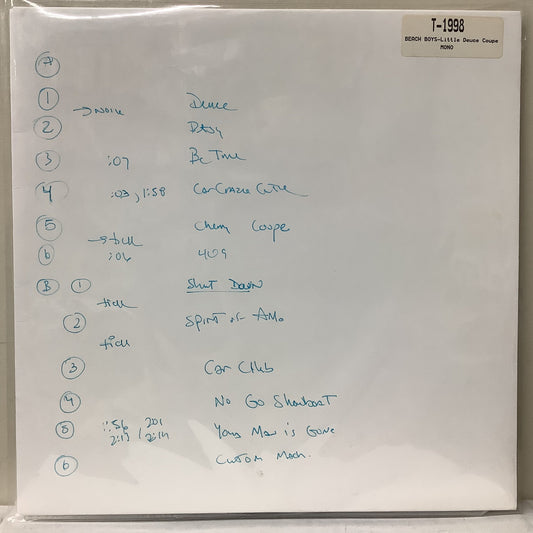 T-1998
BEACH BOYS-Little Deuce Coupe
MONO
A
1 Deuce
→ NOISE
2
3 :07 Be True
4 :03, 1:58 Car Crazy Cutie
5 Cherry Coupe
→ tick
6 :06 409
B 1 Shut Down
tick
2 Spirit of Am.
tick
3 Car Club
4 No Go Showboat
5 :56 201 Young Man is Gone
2:13 / 2:14
6 Custom Mach.